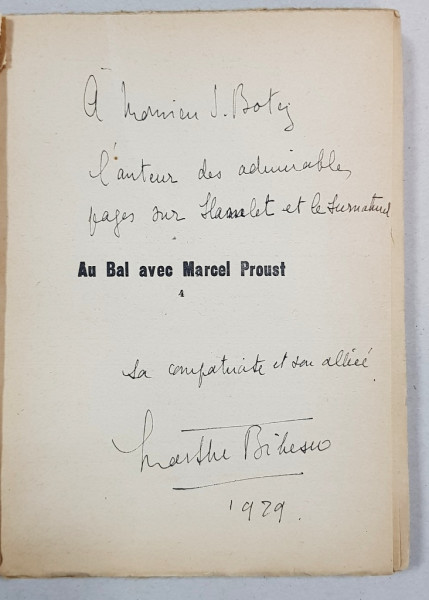 À Monsieur J. Botez
l'auteur des admirables
pages sur Hamlet et le Surnaturel
Au Bal avec Marcel Proust
4
sa compatriote et son alliée
Marthe Bibesco
1929.